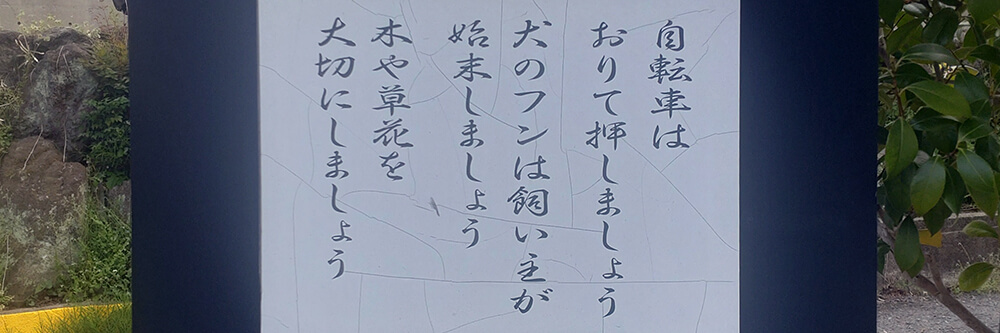 自転車は
おりて押しましょう
犬のフンは飼い主が
始末しましょう
木や草花を
大切にしましょう